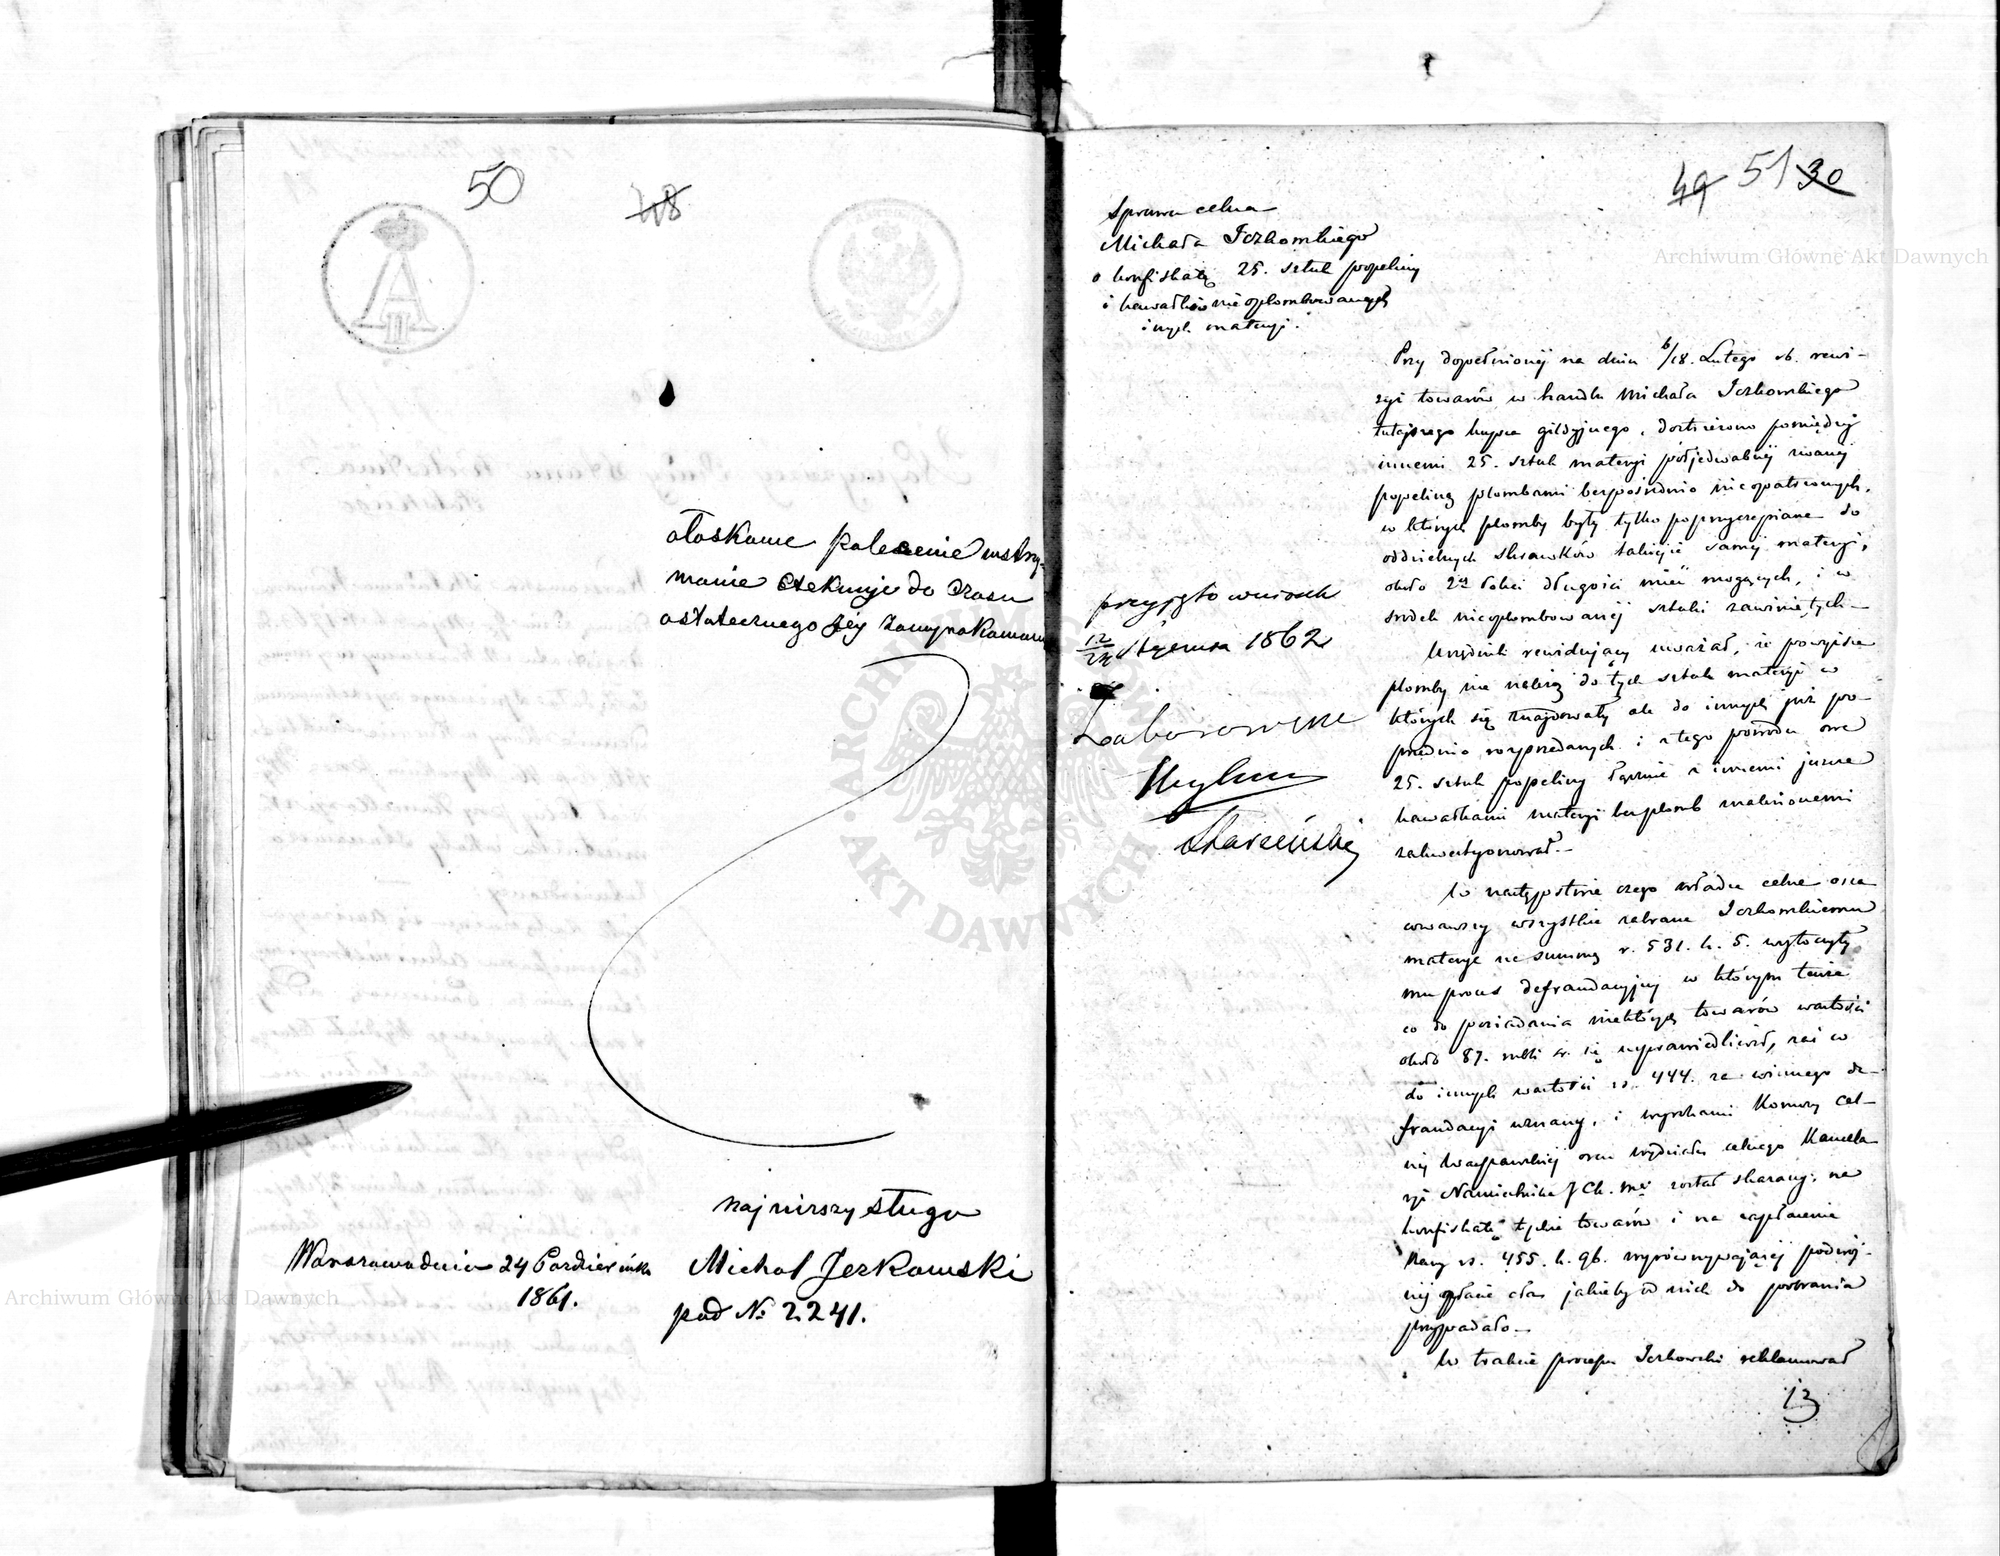 50
48
ołaskawe polecenie wstrzy-
manie Exekucyi do Czasu
ostatecznego Jey
najnirszy sługa
Warszawa dnia 24 Pazdziernika
1861.
Michał Jezkowski
pod № 2241.
49 51 30
Sprawa celna
Michała Iczkowskiego
o konfiskatę 25. sztuk popeliny
i kawałków nieoplombowanych
innych materyi.
przyjęto wniosek
12/24 stycznia 1862
Starzeński
Przy dopełnionéj na dniu 6/18. Lutego rb. rewi-
zyi towarów w handlu Michała Iczkowskiego
tutejszego kupca gildyjnego, dostrzeżono pomiędzy
innemi 25. sztuk materyi półjedwabnéj zwanéj
popeliną plombami bezpośrednio nieopatrzonych,
w których plomby były tylko poprzyczepiane do
oddzielnych skrawków takiejże saméj materyi,
około 2ch łokci długości mieć mogących, i w
środek nieoplombowanéj sztuki zawiniętych-
Urzędnik rewidujący uważał, że powyższe
plomby nie należą do tych sztuk materyi w
których się znajdowały ale do innych już po-
przednio rozprzedanych i z tego powodu owe
25. sztuk popeliny łącznie z innemi jeszcze
kawałkami materyi bez plomb znalezionemi
zakwestyonował.-
W następstwie czego władze celne osza
cowawszy wszystkie zabrane Iczkowskiemu
materye na summę r. 531. k. 5. wytoczyły
mu proces defraudacyjny w którym tenże
co do posiadania niektórych towarów wartości
około 87. rubli sr. się usprawiedliwił, zaś co
do innych wartości rs. 444. za winnego de-
fraudacyi uznany, i wyrokami Komory Cel-
néj Warszawskiéj oraz wydziału celnego Kancela
ryi Namiestnika J. Ch. Mci został skazany, na
konfiskatę tychże towarów i na zapłacenie
kary rs. 455. k. 96. wyrównywającéj podwój-
néj opłacie cła jakieby od nich do pobrania
przypadało-
W trakcie procesu Iczkowski reklamował
13
Archiwum Główne Akt Dawnych
Archiwum Główne Akt Dawnych
ARCHIWUM GŁÓWNE AKT DAWNYCH